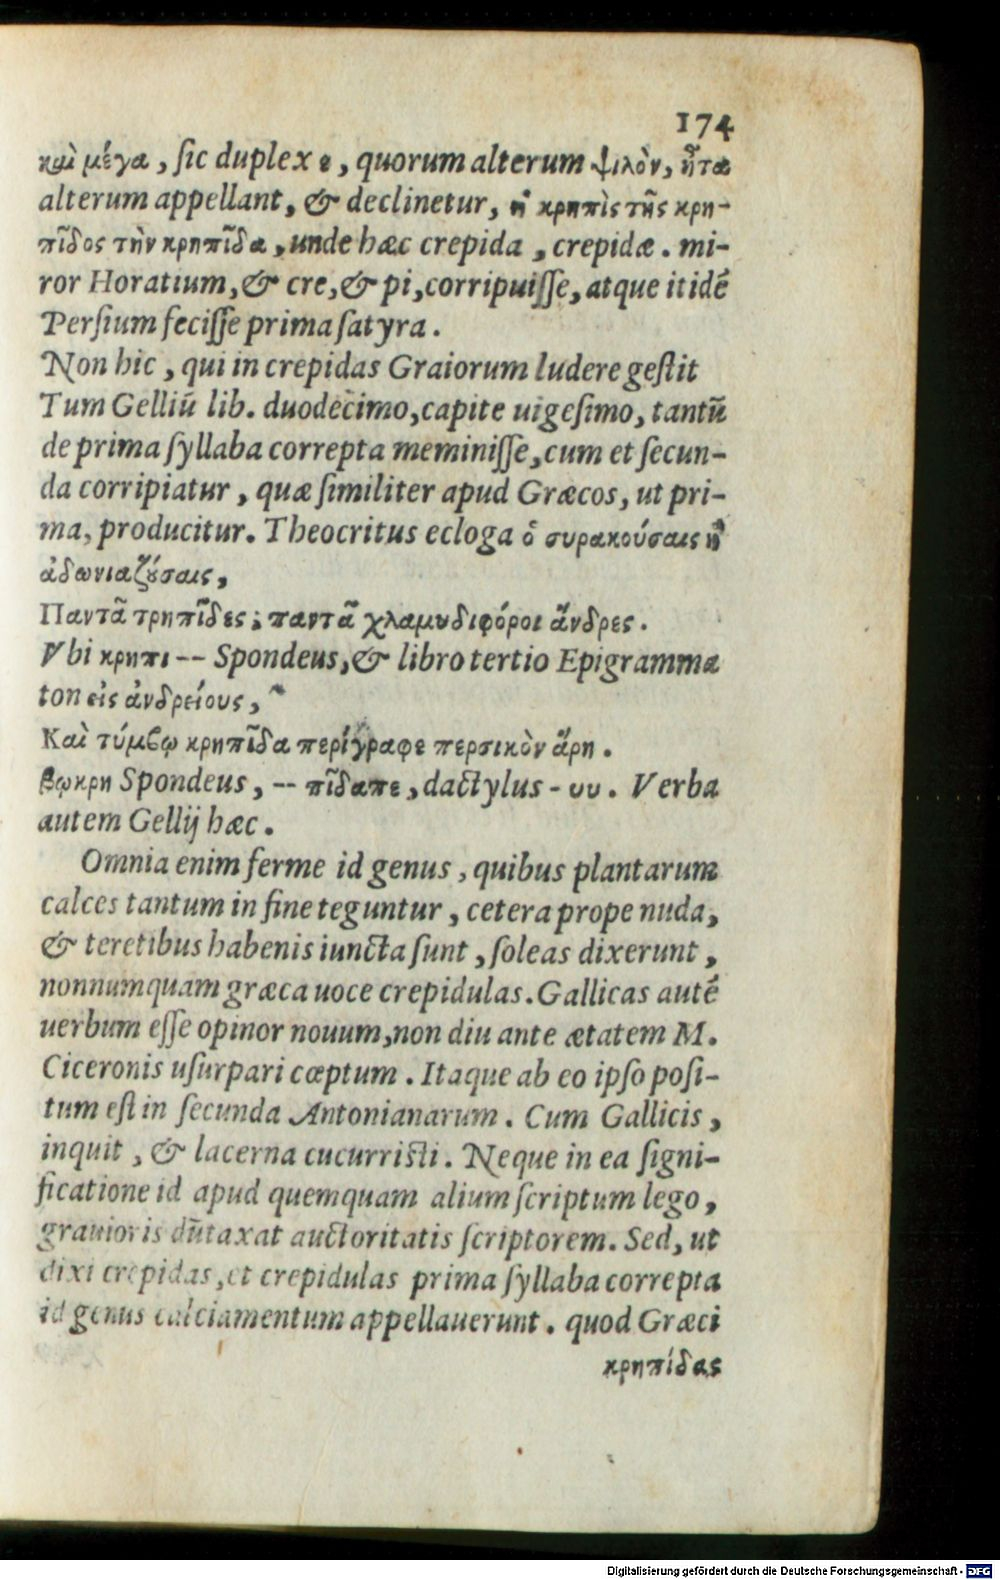 174
καὶ μέγα, ſic duplex ε, quorum alterum ψιλὸν, ἦτα
alterum appellant, & declinetur, ἡ κρηπὶς τῆς κρη-
πῖδος τὴν κρηπῖδα, unde hæc crepida, crepidæ. mi-
ror Horatium, & cre, & pi, corripuiſſe, atque itidē
Perſium feciſſe prima ſatyra.
Non hic, qui in crepidas Graiorum ludere geſtit
Tum Gelliū lib. duodecimo, capite uigeſimo, tantū
de prima ſyllaba correpta meminiſſe, cum et ſecun-
da corripiatur, quæ ſimiliter apud Græcos, ut pri-
ma, producitur. Theocritus ecloga ὁ συρακούσαις ἢ
ἀδωνιαζούσαις,
Παντᾶ τρηπῖδες; παντᾶ χλαμυδιφόροι ἄνδρες.
Vbi κρηπι -- Spondeus, & libro tertio Epigramma
ton εἰς ἀνδρείους,
Καὶ τύμβῳ κρηπῖδα περίγραφε περσικὸν ἄρη.
βῳκρη Spondeus, -- πῖδαπε, dactylus - υυ. Verba
autem Gellij hæc.
Omnia enim ferme id genus, quibus plantarum
calces tantum in fine teguntur, cetera prope nuda,
& teretibus habenis iuncta ſunt, ſoleas dixerunt,
nonnumquam græca uoce crepidulas. Gallicas autē
uerbum eſſe opinor nouum, non diu ante ætatem M.
Ciceronis uſurpari cœptum. Itaque ab eo ipſo poſi-
tum eſt in ſecunda Antonianarum. Cum Gallicis,
inquit, & lacerna cucurriſti. Neque in ea ſigni-
ficatione id apud quemquam alium ſcriptum lego,
grauioris dūtaxat auctoritatis ſcriptorem. Sed, ut
dixi crepidas, et crepidulas prima ſyllaba correpta
id genus calciamentum appellauerunt. quod Græci
κρηπίδας
Digitalisierung gefördert durch die Deutsche Forschungsgemeinschaft - DFG